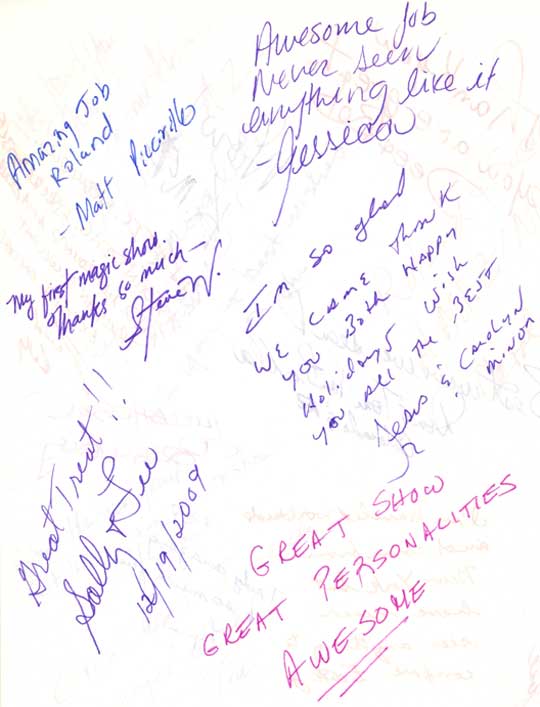 Awesome Job
Never seen
anything like it
- Jessica
Amazing Job
Roland
- Matt
My first magic show.
Thanks so much -
Steve W.
I'm so glad
we came Thank
you Both Happy
Holidays Wish
you all the BEST
Jesus & Carolyn
Great Treat!!
Sally & Lee
12/19/2009
GREAT SHOW
GREAT PERSONALITIES
AWESOME